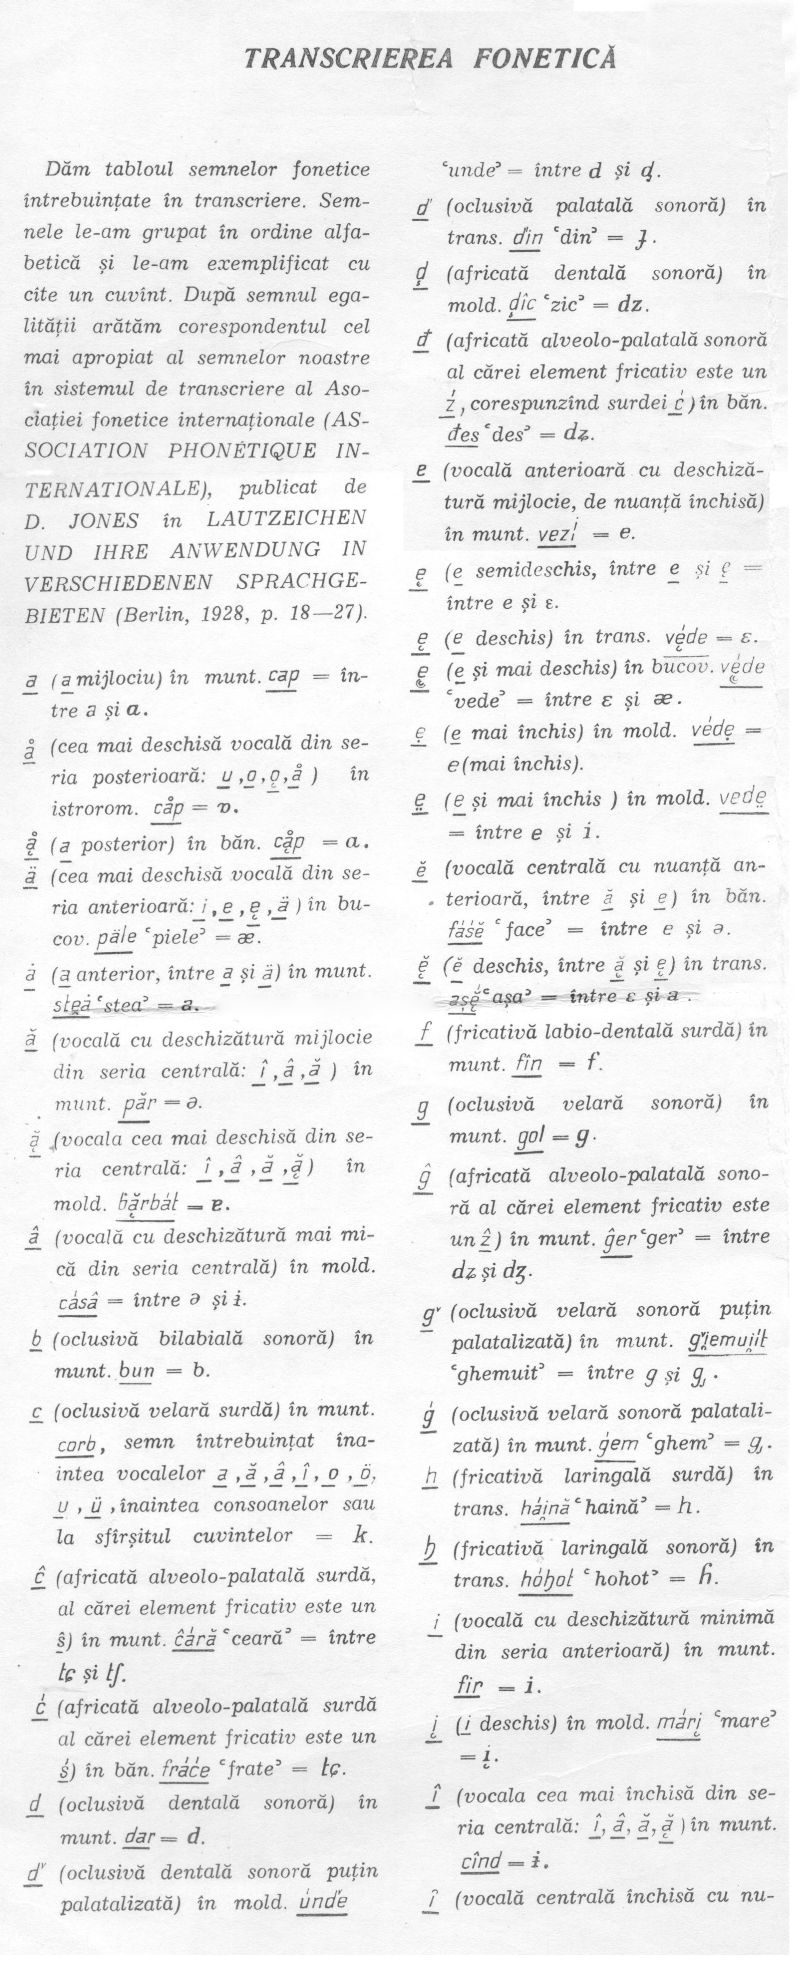 TRANSCRIEREA FONETICĂ
Dăm tabloul semnelor fonetice
întrebuințate în transcriere. Sem-
nele le-am grupat în ordine alfa-
betică și le-am exemplificat cu
cîte un cuvînt. După semnul ega-
lității arătăm corespondentul cel
mai apropiat al semnelor noastre
în sistemul de transcriere al Aso-
ciației fonetice internaționale (AS-
SOCIATION PHONÉTIQUE IN-
TERNATIONALE), publicat de
D. JONES în LAUTZEICHEN
UND IHRE ANWENDUNG IN
VERSCHIEDENEN SPRACHGE-
BIETEN (Berlin, 1928, p. 18—27).
a (a mijlociu) în munt. cap = în-
tre a și ɑ.
å (cea mai deschisă vocală din se-
ria posterioară: u, o, o̧, å) în
istrorom. cåp = ɒ.
å̧ (a posterior) în băn. cå̧p = ɑ.
ä (cea mai deschisă vocală din se-
ria anterioară: i, e, ę, ä) în bu-
cov. päle ʿpieleʾ = æ.
ȧ (a anterior, între a și ä) în munt.
ste̯ȧ ʿsteaʾ = a.
ă (vocală cu deschizătură mijlocie
din seria centrală: î, â, ă) în
munt. păr = ə.
ą̆ (vocala cea mai deschisă din se-
ria centrală: î, â, ă, ą̆) în
mold. bą̆rbát = ɐ.
â (vocală cu deschizătură mai mi-
că din seria centrală) în mold.
cásâ = între ə și ɨ.
b (oclusivă bilabială sonoră) în
munt. bun = b.
c (oclusivă velară surdă) în munt.
corb, semn întrebuințat îna-
intea vocalelor a, ă, â, î, o, ö,
u, ü, înaintea consoanelor sau
la sfîrșitul cuvintelor = k.
ĉ (africată alveolo-palatală surdă,
al cărei element fricativ este un
ŝ) în munt. ĉáră ʿcearăʾ = între
tɕ și tʃ.
ć (africată alveolo-palatală surdă
al cărei element fricativ este un
ś) în băn. fráće ʿfrateʾ = tɕ.
d (oclusivă dentală sonoră) în
munt. dar = d.
dˇ (oclusivă dentală sonoră puțin
palatalizată) în mold. úndˇe
ʿundeʾ = între d și ᶁ.
d́ (oclusivă palatală sonoră) în
trans. d́in ʿdinʾ = ɟ.
d̦ (africată dentală sonoră) în
mold. d̦îc ʿzicʾ = dz.
đ (africată alveolo-palatală sonoră
al cărei element fricativ este un
ź, corespunzînd surdei ć) în băn.
đes ʿdesʾ = dʑ.
e (vocală anterioară cu deschiză-
tură mijlocie, de nuanță închisă)
în munt. vezí = e.
ę (e semideschis, între e și ę =
între e și ɛ.
ę (e deschis) în trans. vę́de = ɛ.
ę (e și mai deschis) în bucov. vę́de
ʿvedeʾ = între ɛ și æ.
ẹ (e mai închis) în mold. védẹ =
e (mai închis).
e̤ (e și mai închis) în mold. vede̤
= între e și i.
ĕ (vocală centrală cu nuanță an-
terioară, între ă și e) în băn.
fáśĕ ʿfaceʾ = între e și ə.
ę̆ (ĕ deschis, între ą̆ și ę) în trans.
așę̆ ʿașaʾ = între ɛ și a.
f (fricativă labio-dentală surdă) în
munt. fîn = f.
g (oclusivă velară sonoră) în
munt. gol = g.
ĝ (africată alveolo-palatală sono-
ră al cărei element fricativ este
un ẑ) în munt. ĝer ʿgerʾ = între
dʑ și dʒ.
gˇ (oclusivă velară sonoră puțin
palatalizată) în munt. gˇi̯emuít
ʿghemuitʾ = între g și ᶃ.
ǵ (oclusivă velară sonoră palatali-
zată) în munt. ǵem ʿghemʾ = ᶃ.
h (fricativă laringală surdă) în
trans. hái̯nă ʿhainăʾ = h.
ḫ (fricativă laringală sonoră) în
trans. hóḫot ʿhohotʾ = ɦ.
i (vocală cu deschizătură minimă
din seria anterioară) în munt.
fir = i.
į (i deschis) în mold. márį ʿmareʾ
= į.
î (vocala cea mai închisă din se-
ria centrală: î, â, ă, ą̆) în munt.
cînd = ɨ.
î (vocală centrală închisă cu nu-